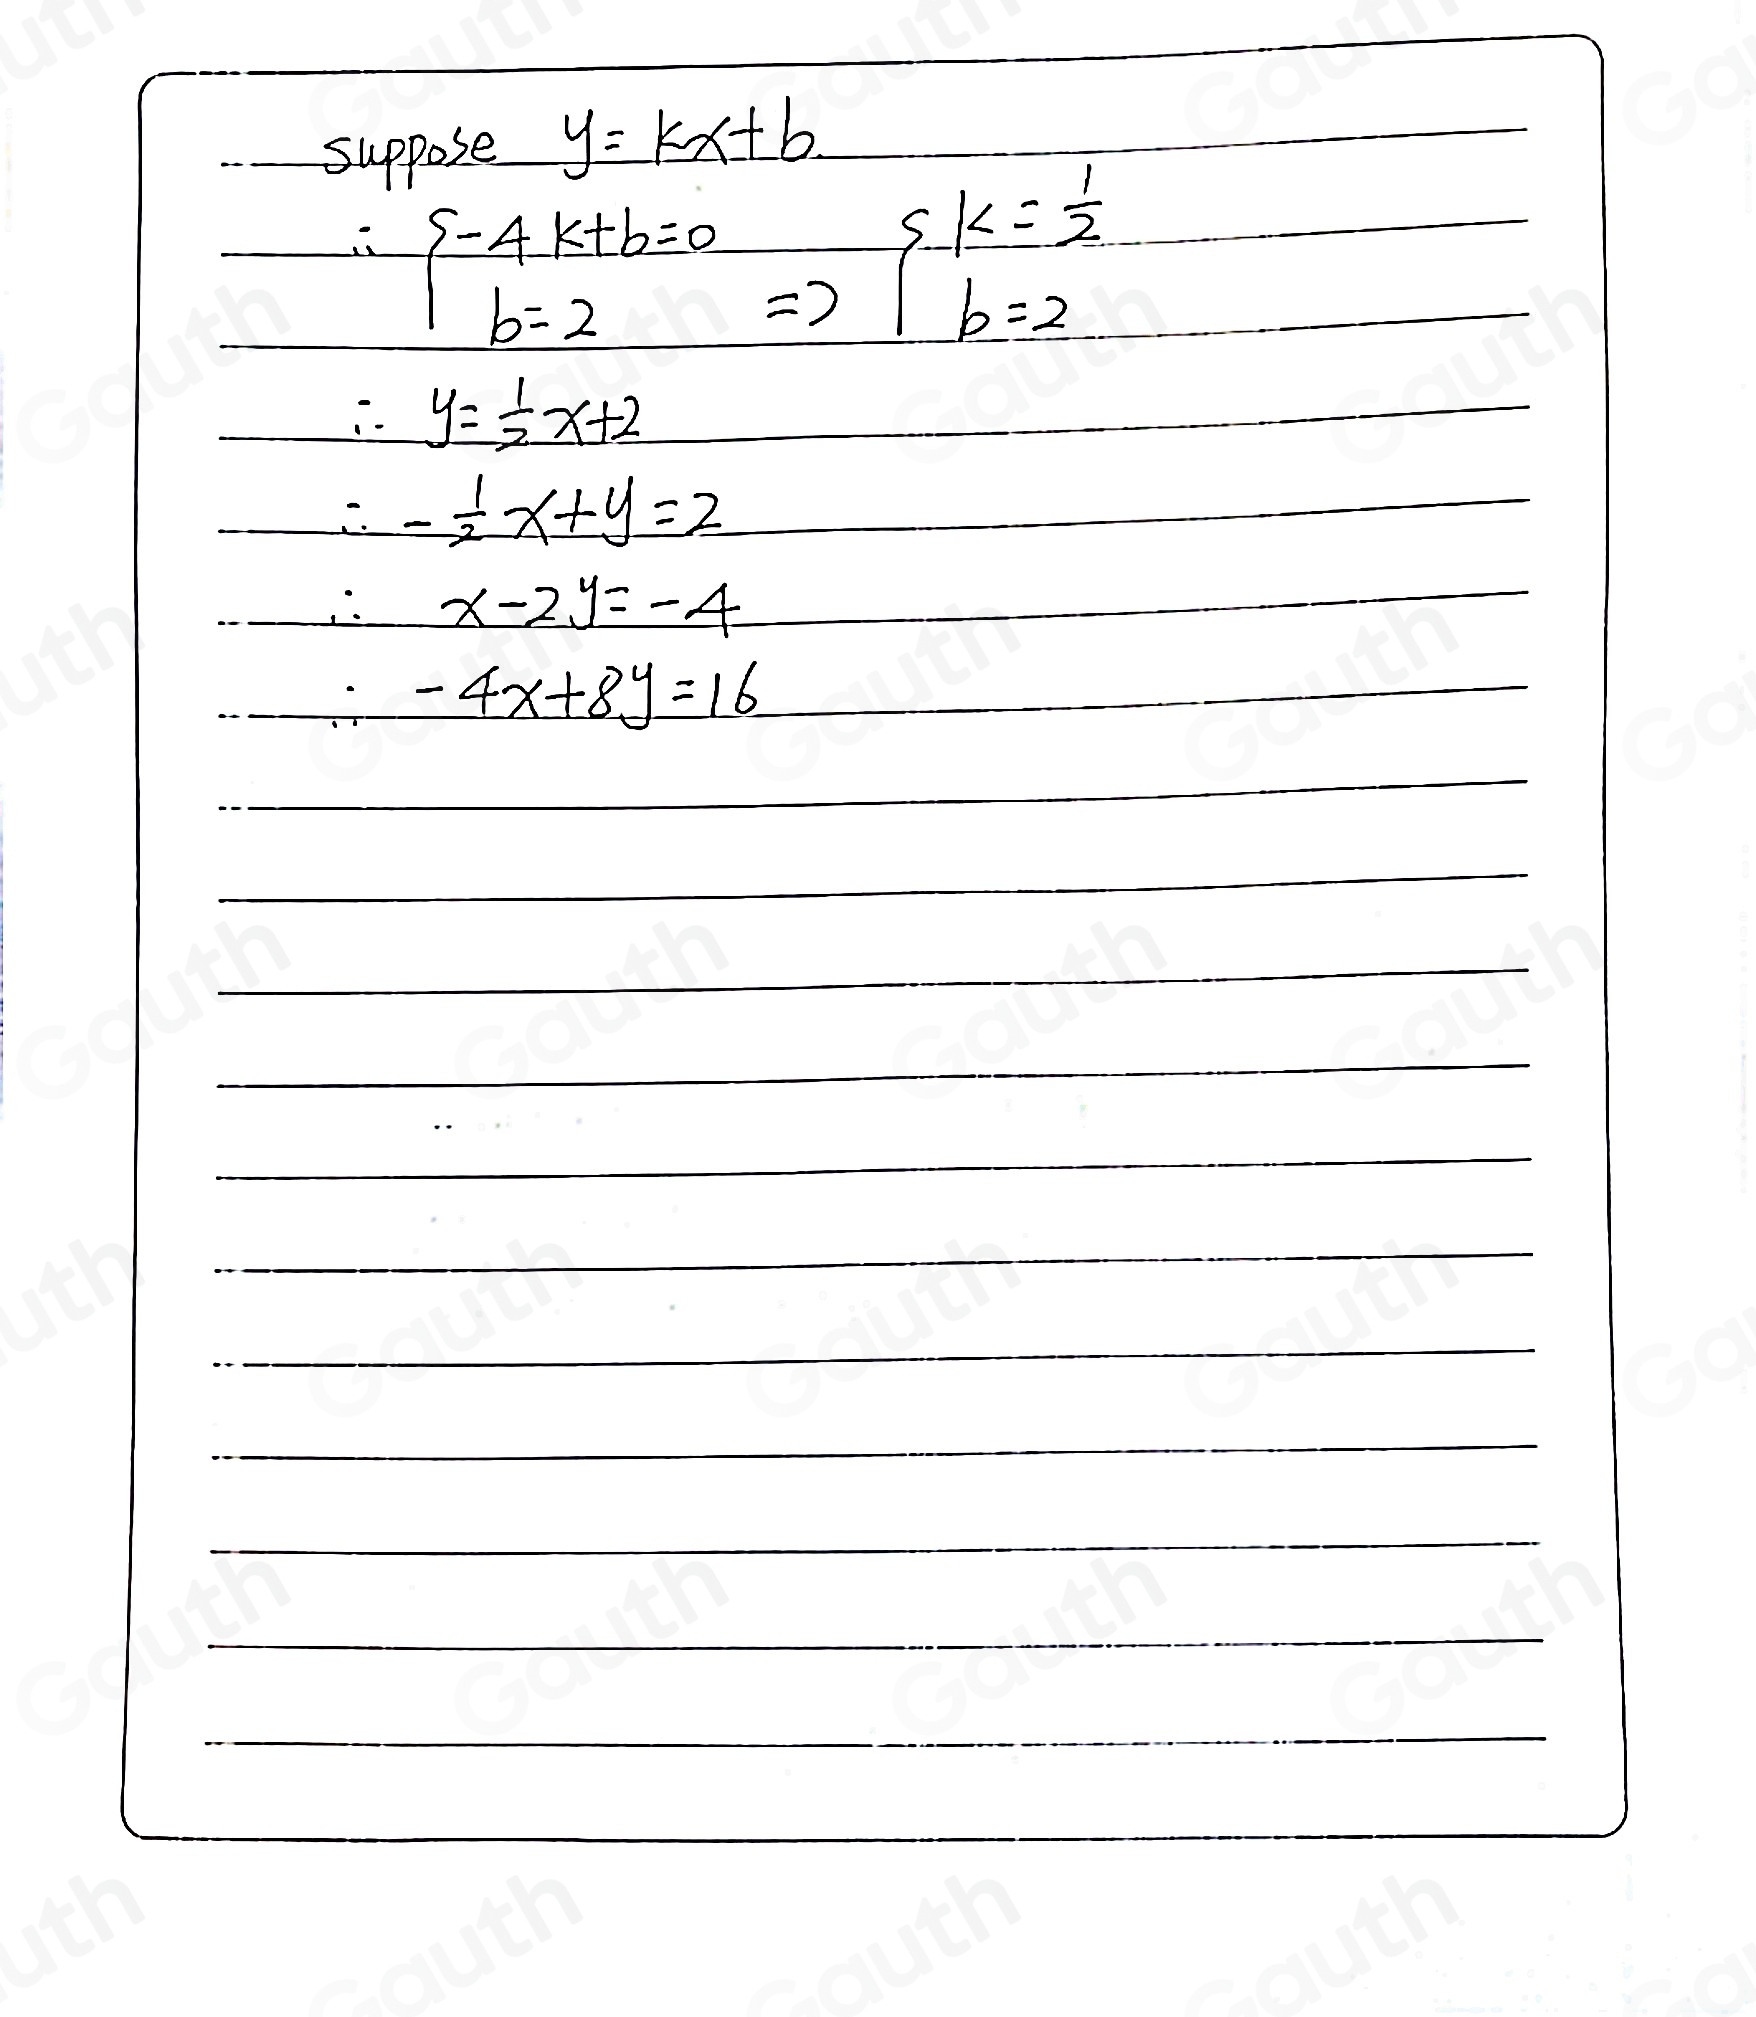 suppose y = kx + b
∴ { -4k + b = 0
b = 2 => { k = 1/2
b = 2
∴ y = 1/2 x + 2
∴ - 1/2 x + y = 2
∴ x - 2y = -4
∴ -4x + 8y = 16
Gauth